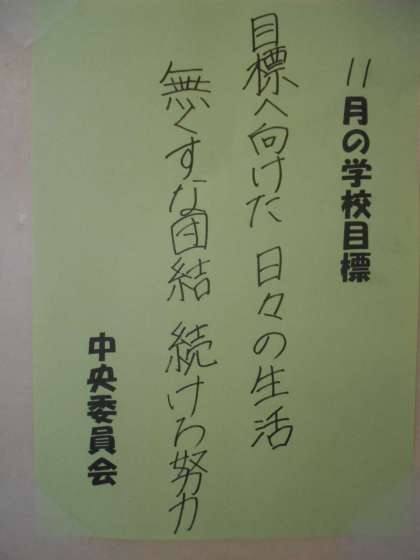 11月の学校目標
目標へ向けた 日々の生活
無くすな団結 続けろ努力
中央委員会